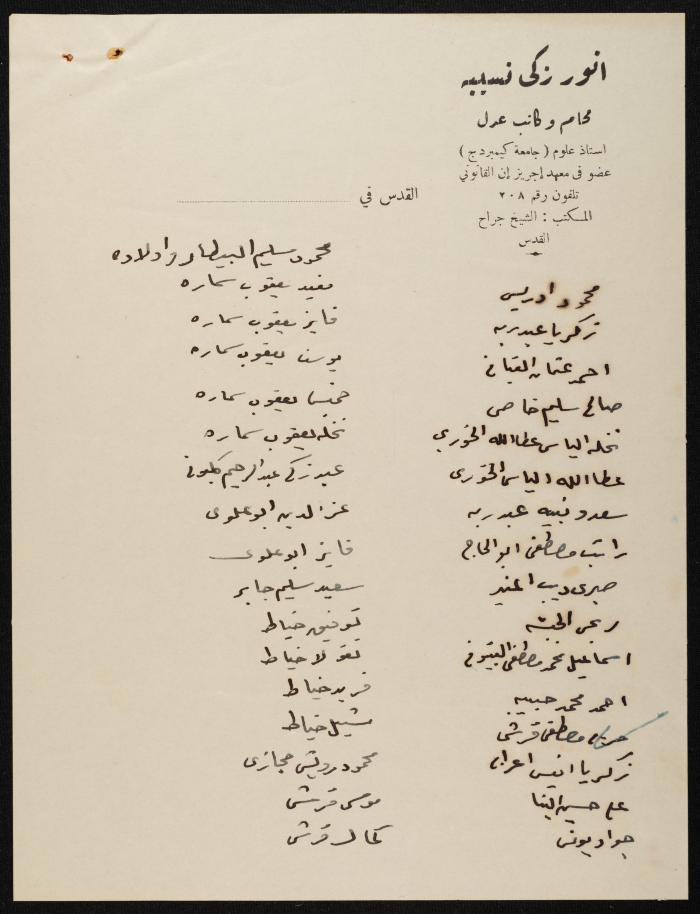 انور زكي نسيبه
محام وكاتب عدل
استاذ علوم (جامعة كيمبردج)
عضو في معهد إجريز إن القانوني
تلفون رقم ٢٠٨
المكتب : الشيخ جراح
القدس
القدس في
محمود ادريس
زكريا عبدربه
احمد عثمان القباني
صالح سليم خاص
نخله الياس عطاالله الخوري
عطاالله الياس الخوري
سعد ونبيه عبدربه
راتب مصطفى ابو الحاج
صبري ديب المنير
ربحي
اسماعيل محمد مصطفى
احمد محمد حبيبه
مصطفى قرشي
زكريا انيس اعرابي
علي حسين البنا
جواد يونس
محمود سليم البيطار واولاده
مفيد يعقوب سماره
فايز يعقوب سماره
يوسف يعقوب سماره
خميس يعقوب سماره
نخله يعقوب سماره
عبد زكي عبدالرحيم
عزالدين ابو علوي
فايز ابو علوي
سعيد سليم جابر
توفيق خياط
نقولا خياط
فريد خياط
ميشيل خياط
محمود درويش حجازي
موسى قرشي
كمال قرشي